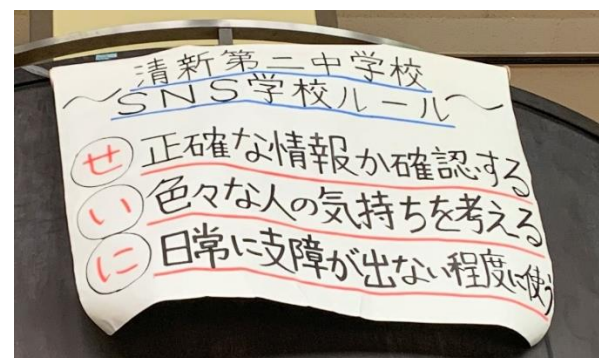 清新第二中学校
～SNS学校ルール～
せ 正確な情報か確認する
い 色々な人の気持ちを考える
に 日常に支障が出ない程度に使う